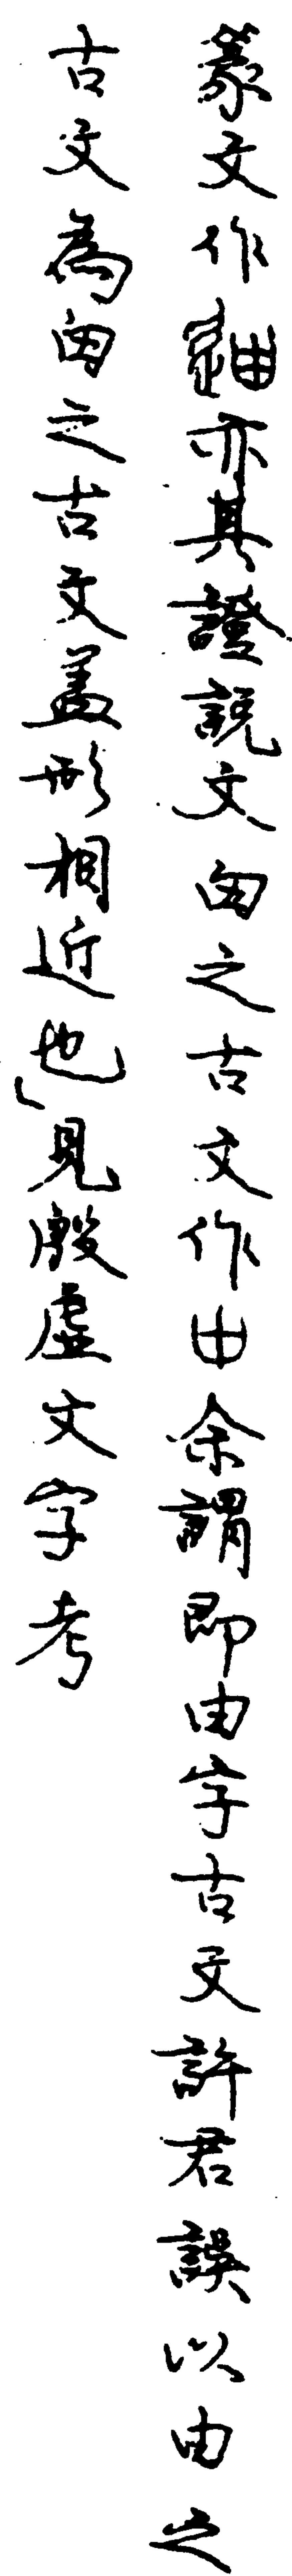 篆文作亦其證說文囪之古文作甴余謂即由字古文許君誤以由之
古文為囪之古文蓋形相近也」見殷虛文字考